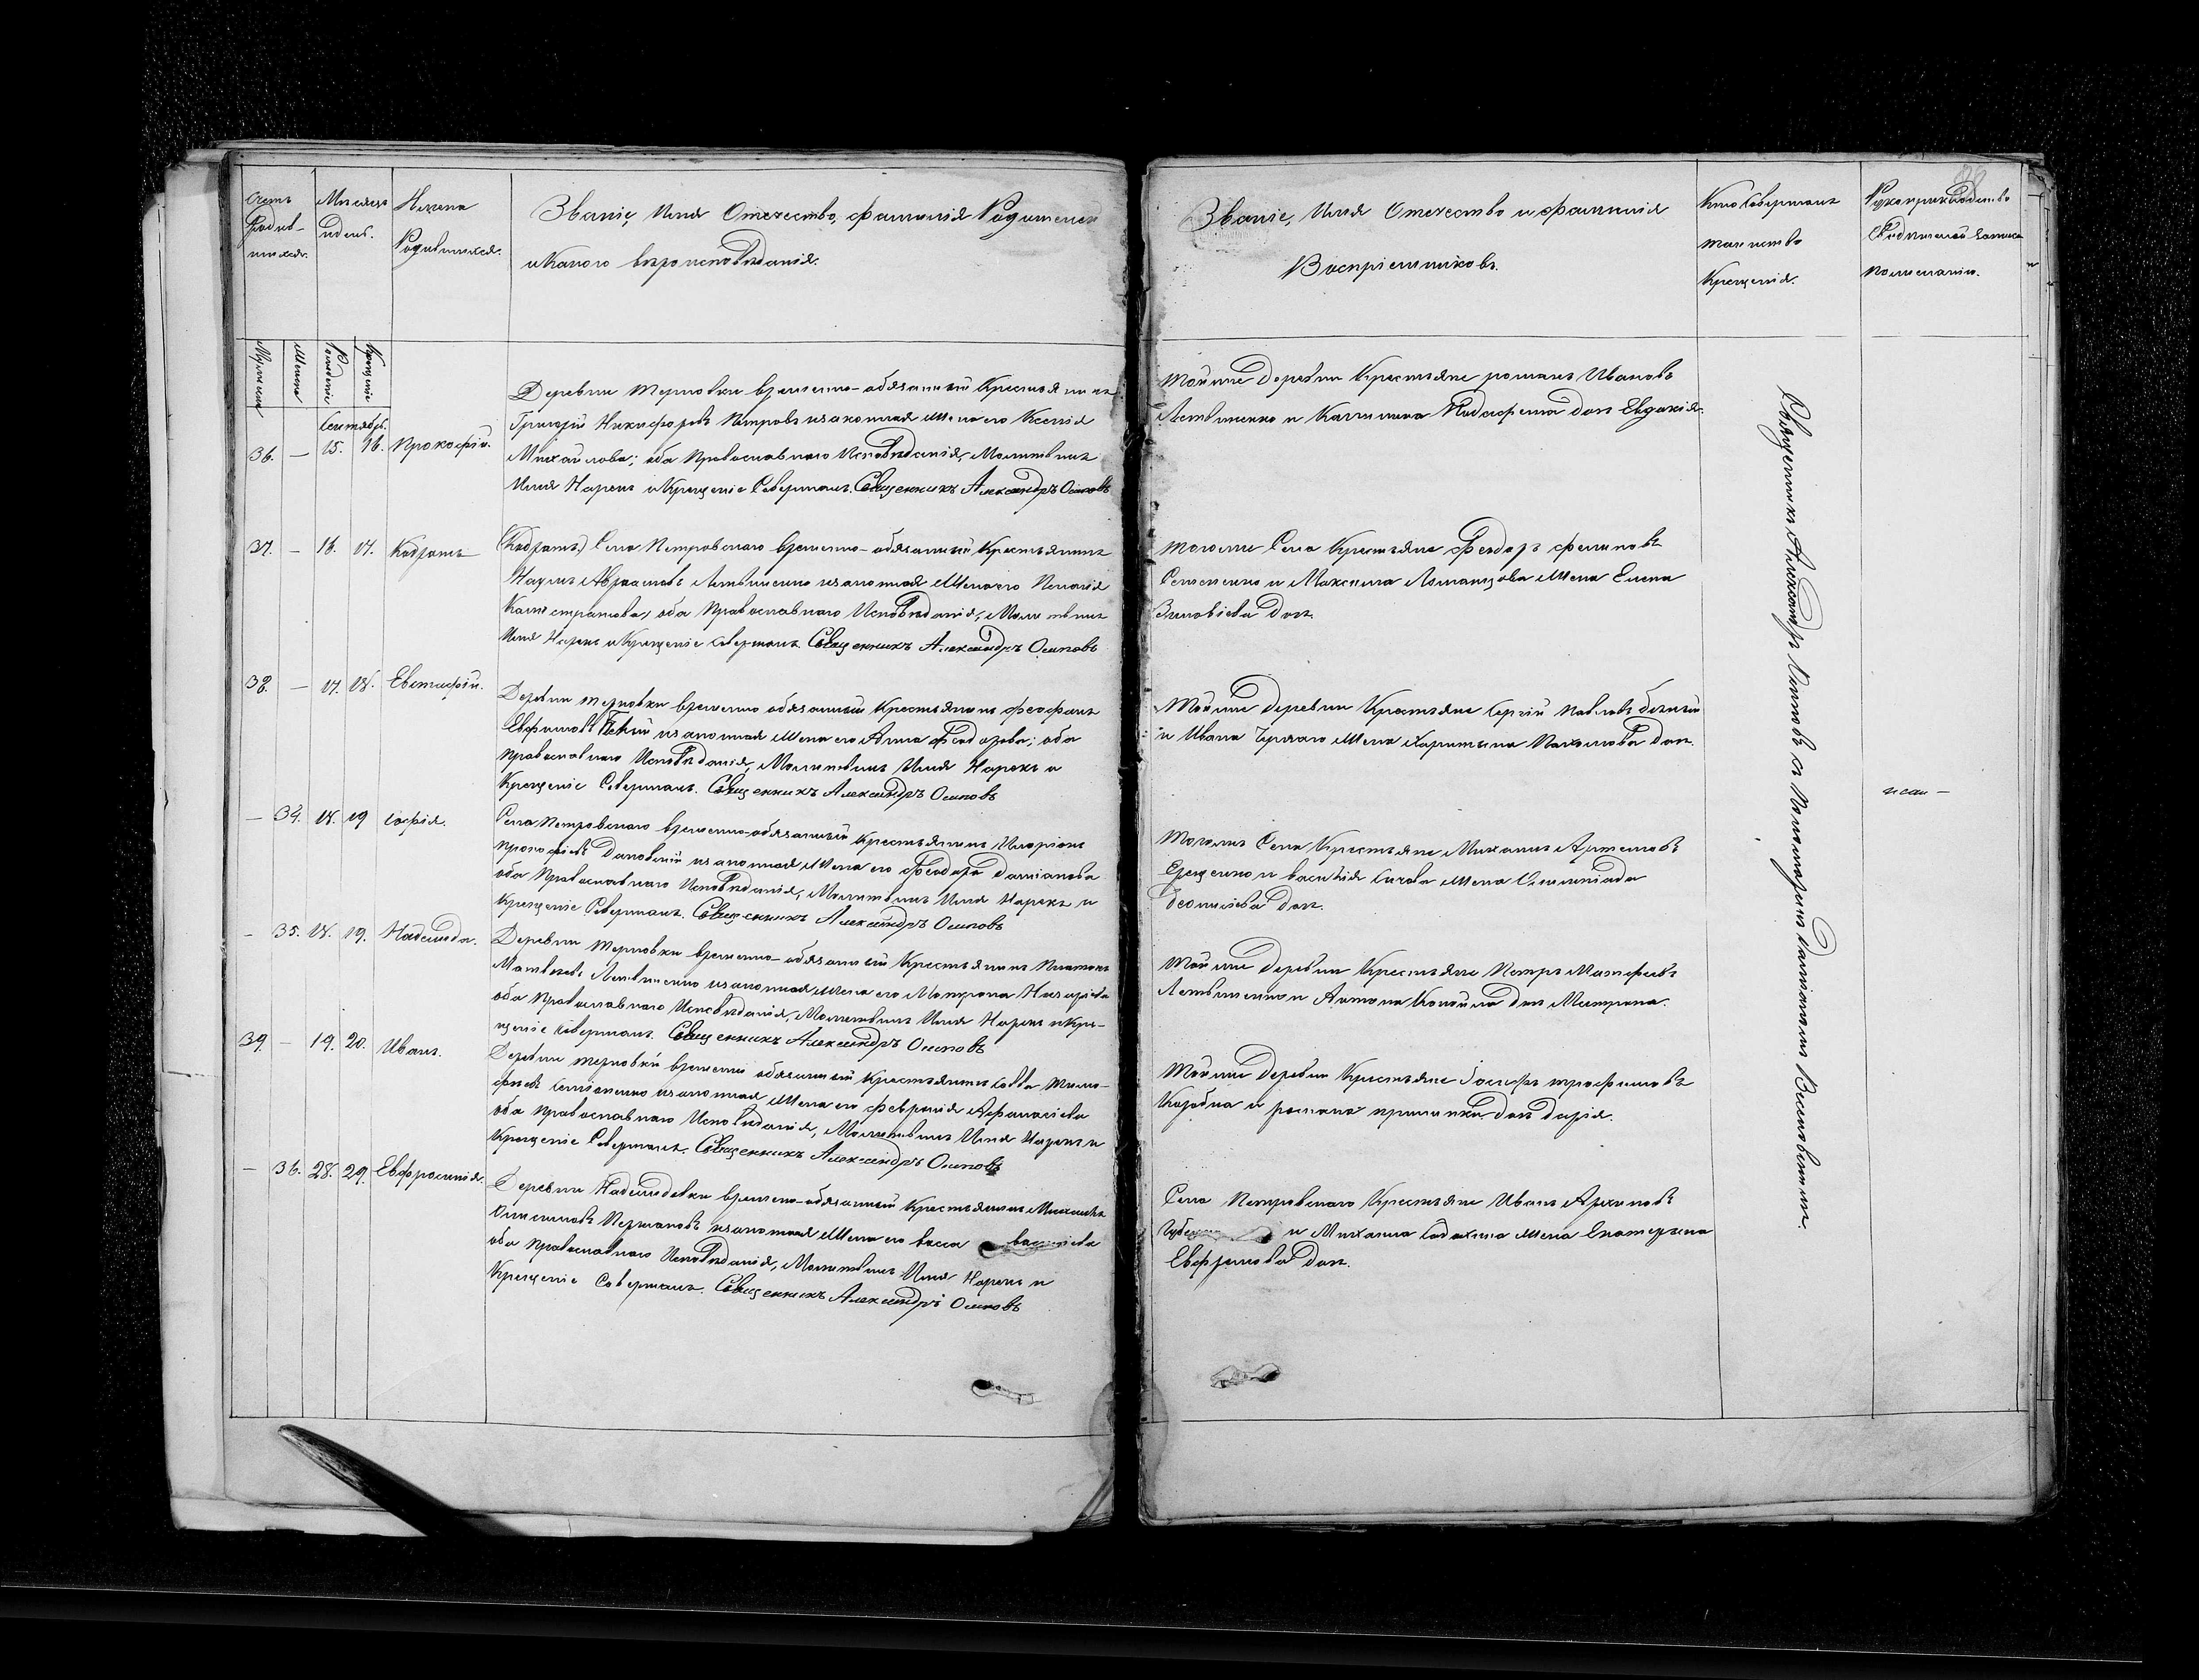 Счетъ
Родив-
шихся.
Мѣсяцъ
и день.
Имена
Родившихся.
Званіе, Имя Отечество, фамилія Родителей
и Какого вѣроисповѣданія.
Званіе, Имя Отечество и фамилія
Воспріемниковъ.
Кто Совершалъ
таинство
Крещенія.
Рукоприкладство
Свидѣтелей записи
по желанію.
Мужеска
Женска
Рожденіе
Крещеніе
Сентябрь.
36. — 15. 16. Прокофій.
Деревни Терновки временно-обязанный Крестьянинъ
Григорій Никифоровъ Петровъ и законная Жена его Ксенія
Михайлова; оба Православнаго Исповѣданія, Молитвилъ
Имя Нарекъ и Крещеніе Совершалъ. Священникъ Александръ Осиповъ
Той же Деревни Крестьяне романъ Ивановъ
Литвиненко и Каленика дочь Евдокія.
37. — 16. 17. Кодратъ
(Кодратъ) Села Петровскаго временно-обязанный Крестьянинъ
Наумъ Авраамовъ Литвиненко и законная Жена его Пелагія
Калистратова, оба Православнаго Исповѣданія; Молитвилъ
Имя Нарекъ и Крещеніе Совершалъ. Священникъ Александръ Осиповъ
Того же Села Крестьяне Феодоръ филиповъ
Семененко и Максима Жена Елена
Зиновіева дочь.
38. — 17. 18. Евстафій.
Деревни терновки временно обязанный Крестьянинъ феофанъ
Евфимовъ и законная Жена его Анна Феодорова; оба
Православнаго Исповѣданія, Молитвилъ Имя Нарекъ и
Крещеніе Совершалъ. Священникъ Александръ Осиповъ
Той же Деревни Крестьяне Сергій Павловъ
и Ивана Жена Харитина дочь.
— 34. 18. 19 Софія.
Села Петровскаго временно-обязанный Крестьянинъ Иларіонъ
Прокофіевъ и законная Жена его Феодора Даміанова
оба Православнаго Исповѣданія, Молитвилъ Имя Нарекъ и
Крещеніе Совершалъ. Священникъ Александръ Осиповъ
Того же Села Крестьяне Михаилъ Артемовъ
Ерещенко и василія Жена Олимпіада
дочь.
— 35. 18. 19. Надежда.
Деревни Терновки временно-обязанный Крестьянинъ Платонъ
Матвѣевъ Литвиненко и законная Жена его Матрона Назаріева
оба Православнаго Исповѣданія, Молитвилъ Имя Нарекъ и Кре-
щеніе Совершалъ. Священникъ Александръ Осиповъ
Той же Деревни Крестьяне Петръ
Литвиненко и Антона дочь Матрона.
39. — 19. 20. Иванъ.
Деревни терновки временно обязанный Крестьянинъ Савва Тимо-
феевъ Семененко и законная Жена его Февронія Афанасіева
оба Православнаго Исповѣданія, Молитвилъ Имя Нарекъ и
Крещеніе Совершалъ. Священникъ Александръ Осиповъ
Той же Деревни Крестьяне Іосифъ трофимовъ
Коробка и романа дочь Дарія.
— 36. 28. 29. Евфросинія.
Деревни Надеждовки временно-обязанный Крестьянинъ Михаилъ
и законная Жена его васса
оба Православнаго Исповѣданія, Молитвилъ Имя Нарекъ и
Крещеніе Совершалъ. Священникъ Александръ Осиповъ
Села Петровскаго Крестьяне Иванъ Архиповъ
и Михаила Жена Екатерина
дочь.
Священникъ Александръ Осиповъ съ Пономаремъ